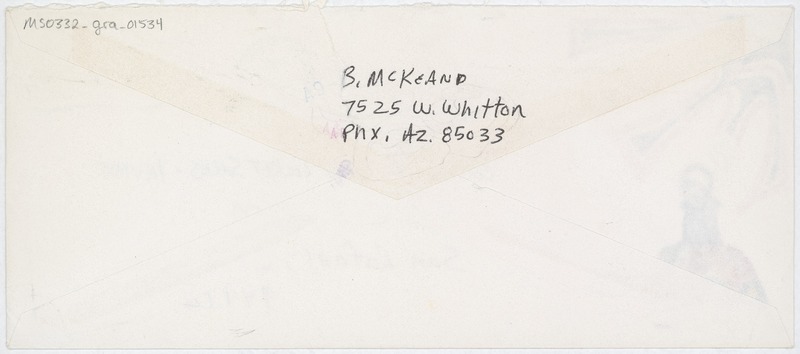 MS0332_gra_01534
B. McKeand
7525 W. Whitton
Phx, Az. 85033